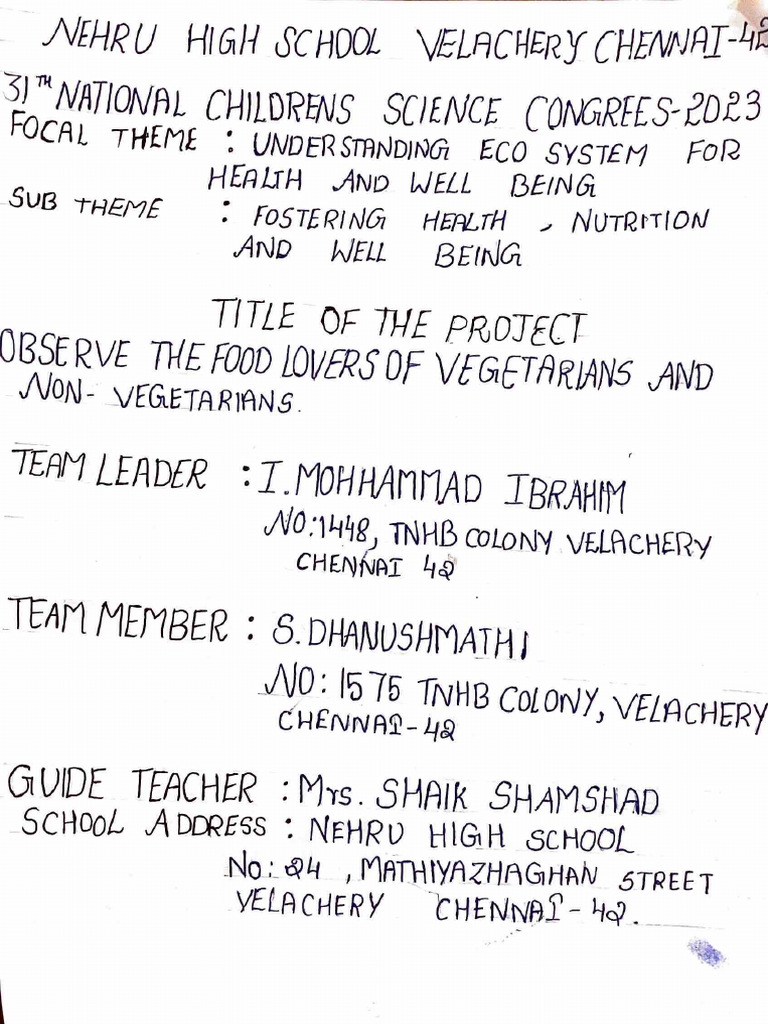 NEHRU HIGH SCHOOL VELACHERY CHENNAI-42
31TH NATIONAL CHILDRENS SCIENCE CONGREES-2023
FOCAL THEME : UNDERSTANDING ECO SYSTEM FOR
HEALTH AND WELL BEING
SUB THEME : FOSTERING HEALTH , NUTRITION
AND WELL BEING
TITLE OF THE PROJECT
OBSERVE THE FOOD LOVERS OF VEGETARIANS AND
NON- VEGETARIANS.
TEAM LEADER : I.MOHHAMMAD IBRAHIM
NO:1448, TNHB COLONY VELACHERY
CHENNAI 42
TEAM MEMBER : S.DHANUSHMATHI
NO: 1575 TNHB COLONY, VELACHERY
CHENNAI-42
GUIDE TEACHER : Mrs. SHAIK SHAMSHAD
SCHOOL ADDRESS : NEHRU HIGH SCHOOL
No: 24 , MATHIYAZHAGHAN STREET
VELACHERY CHENNAI-42.